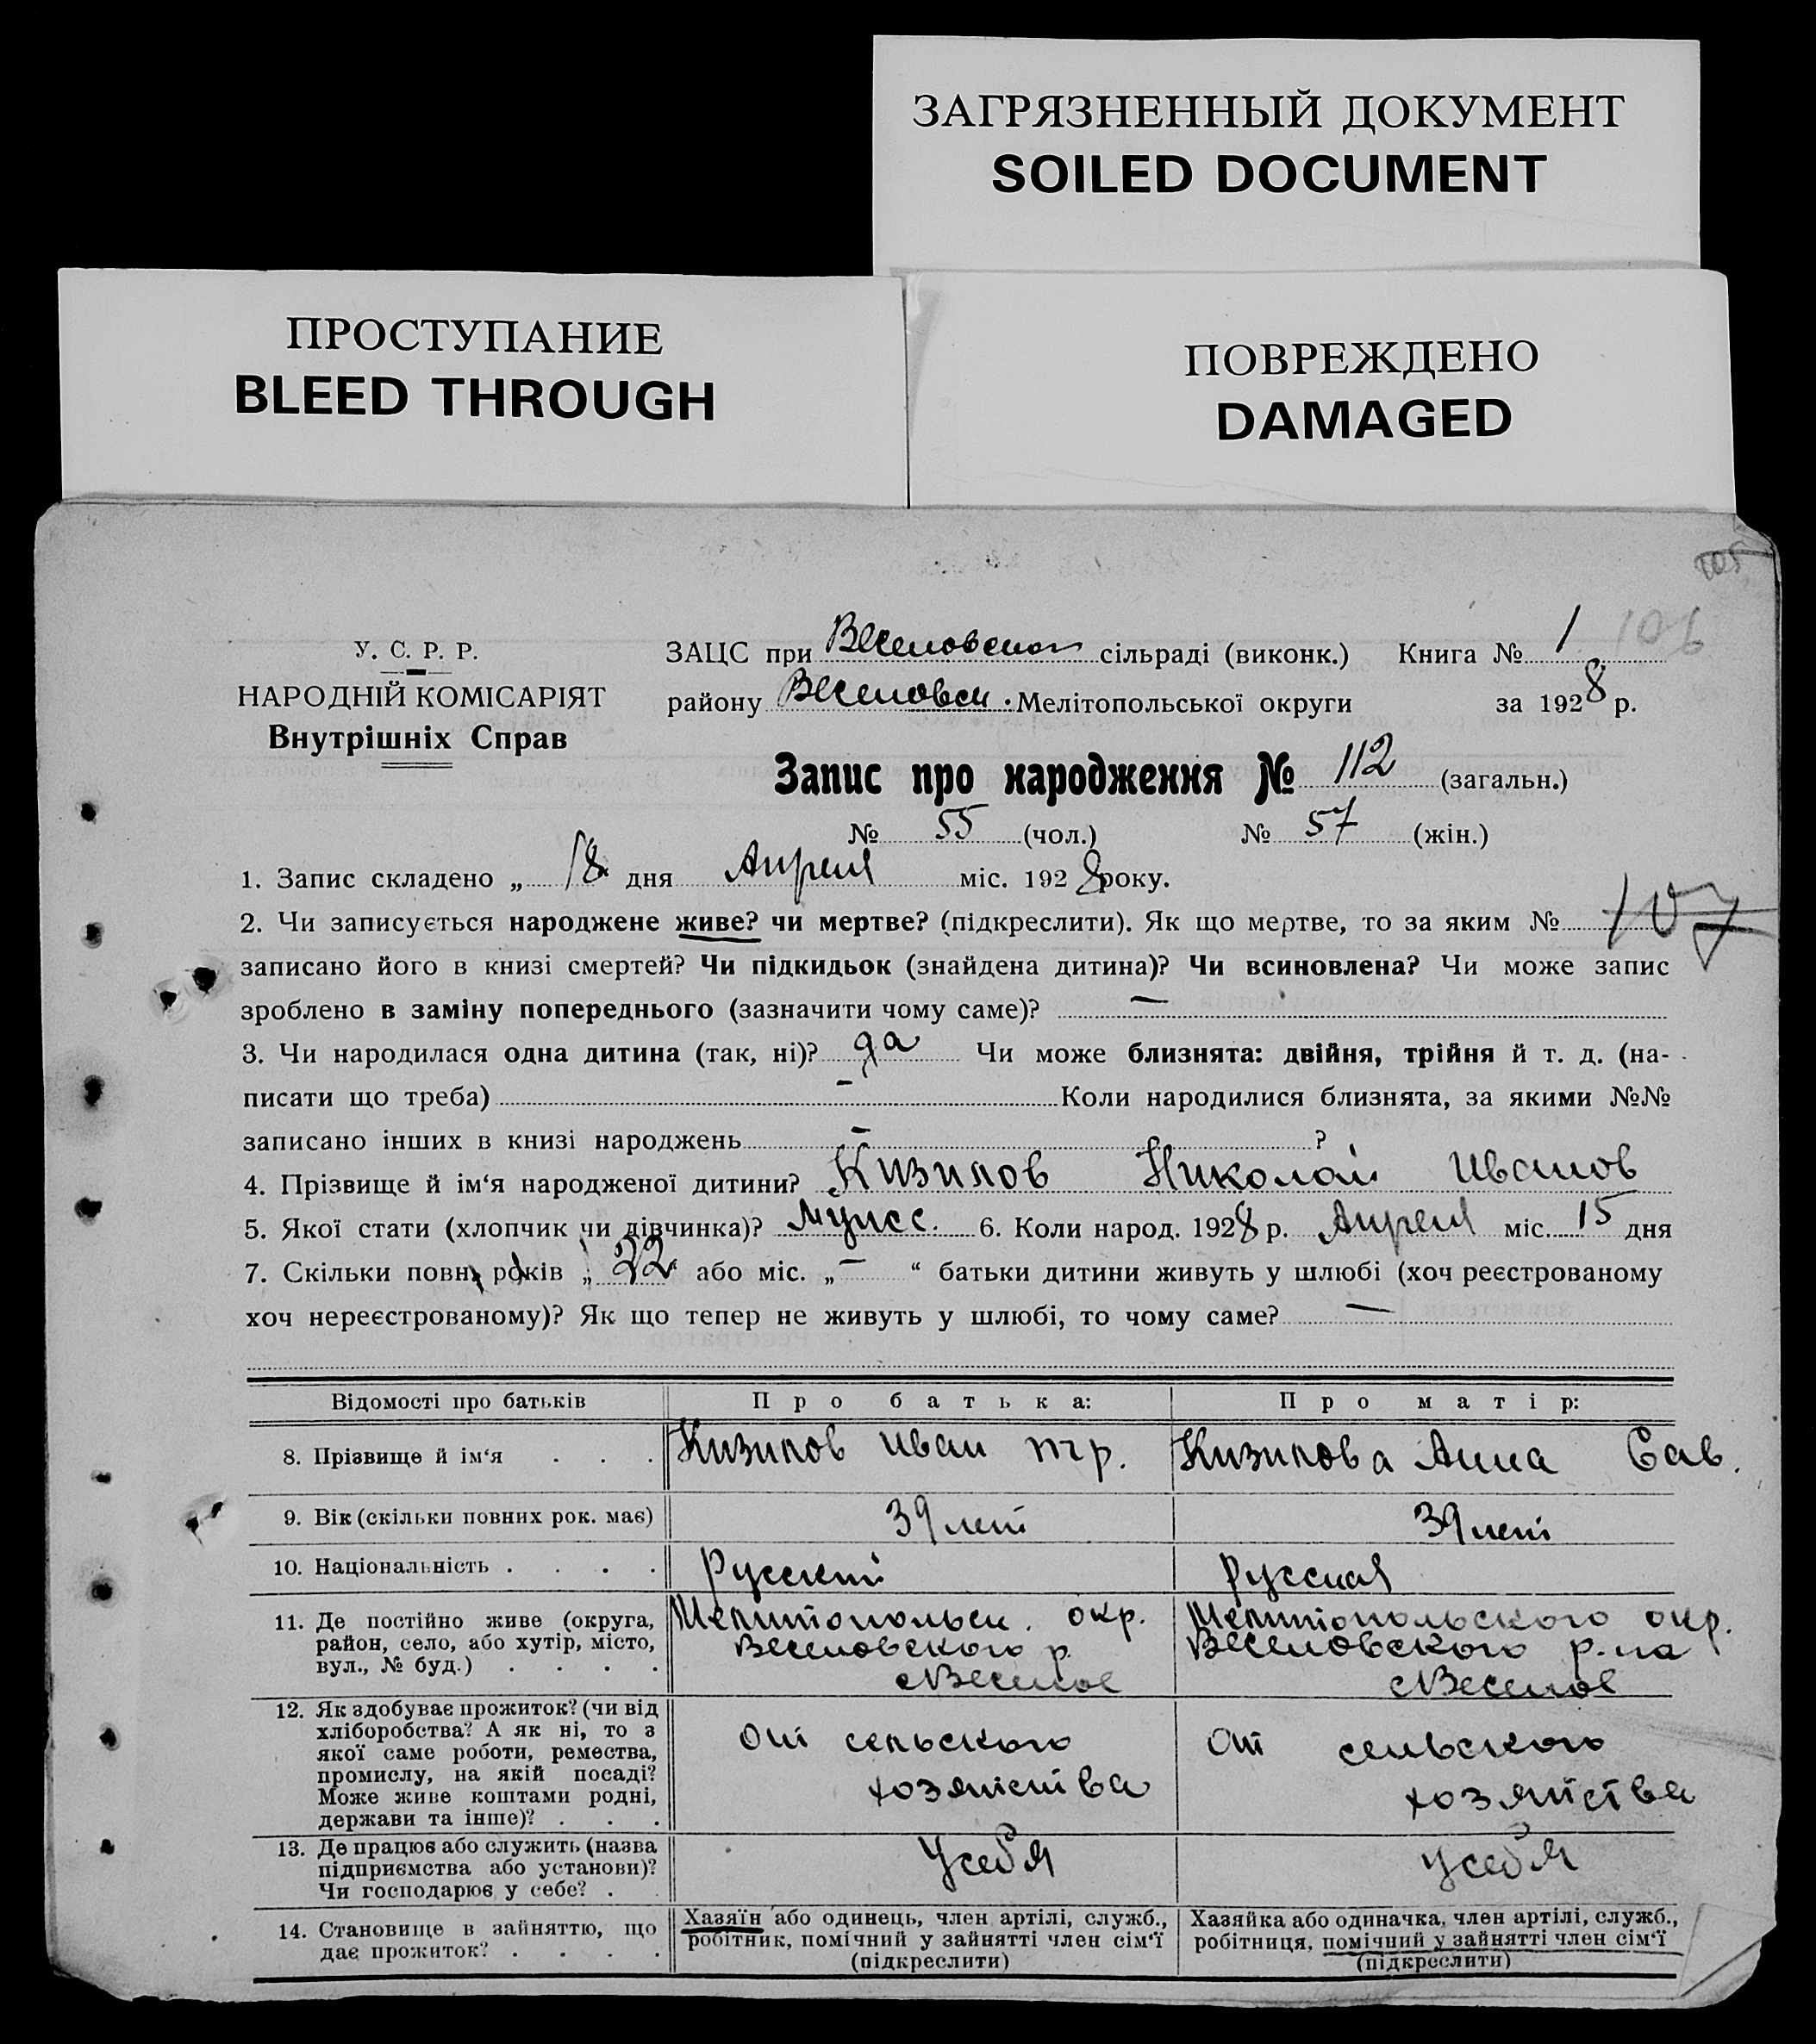 ЗАГРЯЗНЕННЫЙ ДОКУМЕНТ
SOILED DOCUMENT
ПРОСТУПАНИЕ
BLEED THROUGH
ПОВРЕЖДЕНО
DAMAGED
105
106
У. С. Р. Р.
НАРОДНІЙ КОМІСАРІЯТ
Внутрішніх Справ
ЗАЦС при Веселовском сільраді (виконк.) Книга № 1
району Веселовск. Мелітопольської округи за 1928 р.
Запис про народження № 112 (загальн.)
№ 55 (чол.) № 57 (жін.)
1. Запис складено „ 18 дня Апреля міс. 1928 року.
2. Чи записується народжене живе? чи мертве? (підкреслити). Як що мертве, то за яким № 107
записано його в книзі смертей? Чи підкидьок (знайдена дитина)? Чи всиновлена? Чи може запис
зроблено в заміну попереднього (зазначити чому саме)? —
3. Чи народилася одна дитина (так, ні)? да Чи може близнята: двійня, трійня й т. д. (на-
писати що треба) — Коли народилися близнята, за якими №№
записано інших в книзі народжень — ?
4. Прізвище й ім‘я народженої дитини? Кизилов Николай Иванов
5. Якої стати (хлопчик чи дівчинка)? Мужс. 6. Коли народ. 1928 р. Апреля міс. 15 дня
7. Скільки повн. років „ 22 “ або міс. „ — “ батьки дитини живуть у шлюбі (хоч реєстрованому
хоч нереєстрованому)? Як що тепер не живуть у шлюбі, то чому саме? —
Відомості про батьків Про батька: Про матір:
8. Прізвище й ім‘я . . . Кизилов Иван тгр. Кизилова Анна Сав.
9. Вік (скільки повних рок. має) 39 лет 39 лет
10. Національність . . . . Русский Русская
11. Де постійно живе (округа,
район, село, або хутір, місто,
вул., № буд.) . . . .
Мелитопольск. окр.
Веселовского р.
с Веселое
Мелитопольского окр.
Веселовского р-на
с Веселое
12. Як здобуває прожиток? (чи від
хліборобства? А як ні, то з
якої саме роботи, ремества,
промислу, на якій посаді?
Може живе коштами родні,
держави та інше)? . . .
От сельского
хозяйства
От сельского
хозяйства
13. Де працює або служить (назва
підприємства або установи)?
Чи господарює у себе? .
У себя
У себя
14. Становище в зайняттю, що
дає прожиток? . . . .
Хазяїн або одинець, член артілі, служб.,
робітник, помічний у зайнятті член сім‘ї
(підкреслити)
Хазяйка або одиначка, член артілі, служб.,
робітниця, помічний у зайнятті член сім‘ї
(підкреслити)